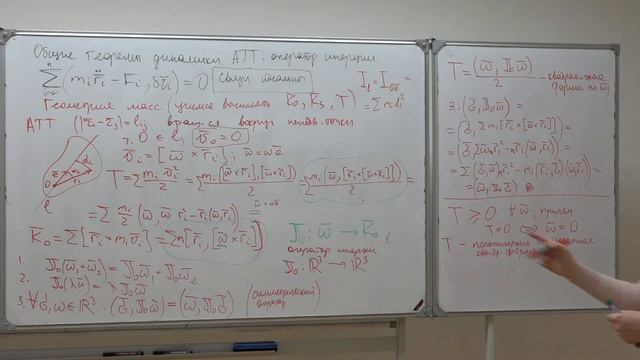 Общие теоремы динамики АТТ: оператор инерции.
∑(mᵢr̈ᵢ − Fᵢ, δr̄ᵢ) = 0 связи идеальны
I_l = I_{Oē} = ∑mᵢdᵢ²
Геометрия масс (учимся вычислять K̄₀, T)
АТТ |r̄ᵢ − r̄ⱼ| = lᵢⱼ вращ-ся вокруг неподв. точки
т. O ∈ l; v̄₀ = 0
v̄ᵢ = [ω̄ × r̄ᵢ]; ω̄ = ωē
T = ∑ mᵢv̄ᵢ²/2 = ∑ mᵢ([ω̄×r̄ᵢ],[ω̄×r̄ᵢ])/2 = ∑ mᵢ(ω̄,[r̄ᵢ×[ω̄×r̄ᵢ]])/2 =
= ∑ mᵢ/2 (ω̄, ω̄ r̄ᵢ² − r̄ᵢ(ω̄, r̄ᵢ))
K̄₀ = ∑[r̄ᵢ × mᵢv̄ᵢ] = ∑mᵢ[r̄ᵢ, [ω̄ × r̄ᵢ]]
J₀: ω̄ → K̄₀
оператор инерции
J₀: ℝ³ → ℝ³
1. J₀(ω̄₁+ω̄₂) = J₀ω̄₁ + J₀ω̄₂
2. J₀(λω̄) = λJ₀ω̄
3. ∀ σ̄, ω̄ ∈ ℝ³: (σ̄, J₀ω̄) = (ω̄, J₀σ̄) (симметрический оператор)
T = (ω̄, J₀ω̄)/2 – квадратичная форма по ω̄
3: (σ̄, J₀ω̄) =
= (σ̄, ∑mᵢ[r̄ᵢ×[ω̄×r̄ᵢ]]) =
= (σ̄, ∑mᵢ(ω̄r̄ᵢ² − r̄ᵢ(r̄ᵢ, ω̄))) =
= (ω̄, J₀σ̄)
T ≥ 0 ∀ ω̄, причем
T = 0 ⟺ ω̄ = 0
T – положительно определенная
квадр. форма